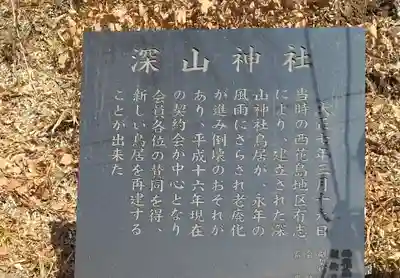 深山神社
大正七年三月十六日
当時の西花島地区有志
により、建立された深
山神社鳥居が、永年の
風雨にさらされ老座化
が進み倒壊のおそれが
あり、平成十六年現在
の契約会が中心となり
会員各位の賛同を得、
新しい鳥居を再建する
ことが出来た